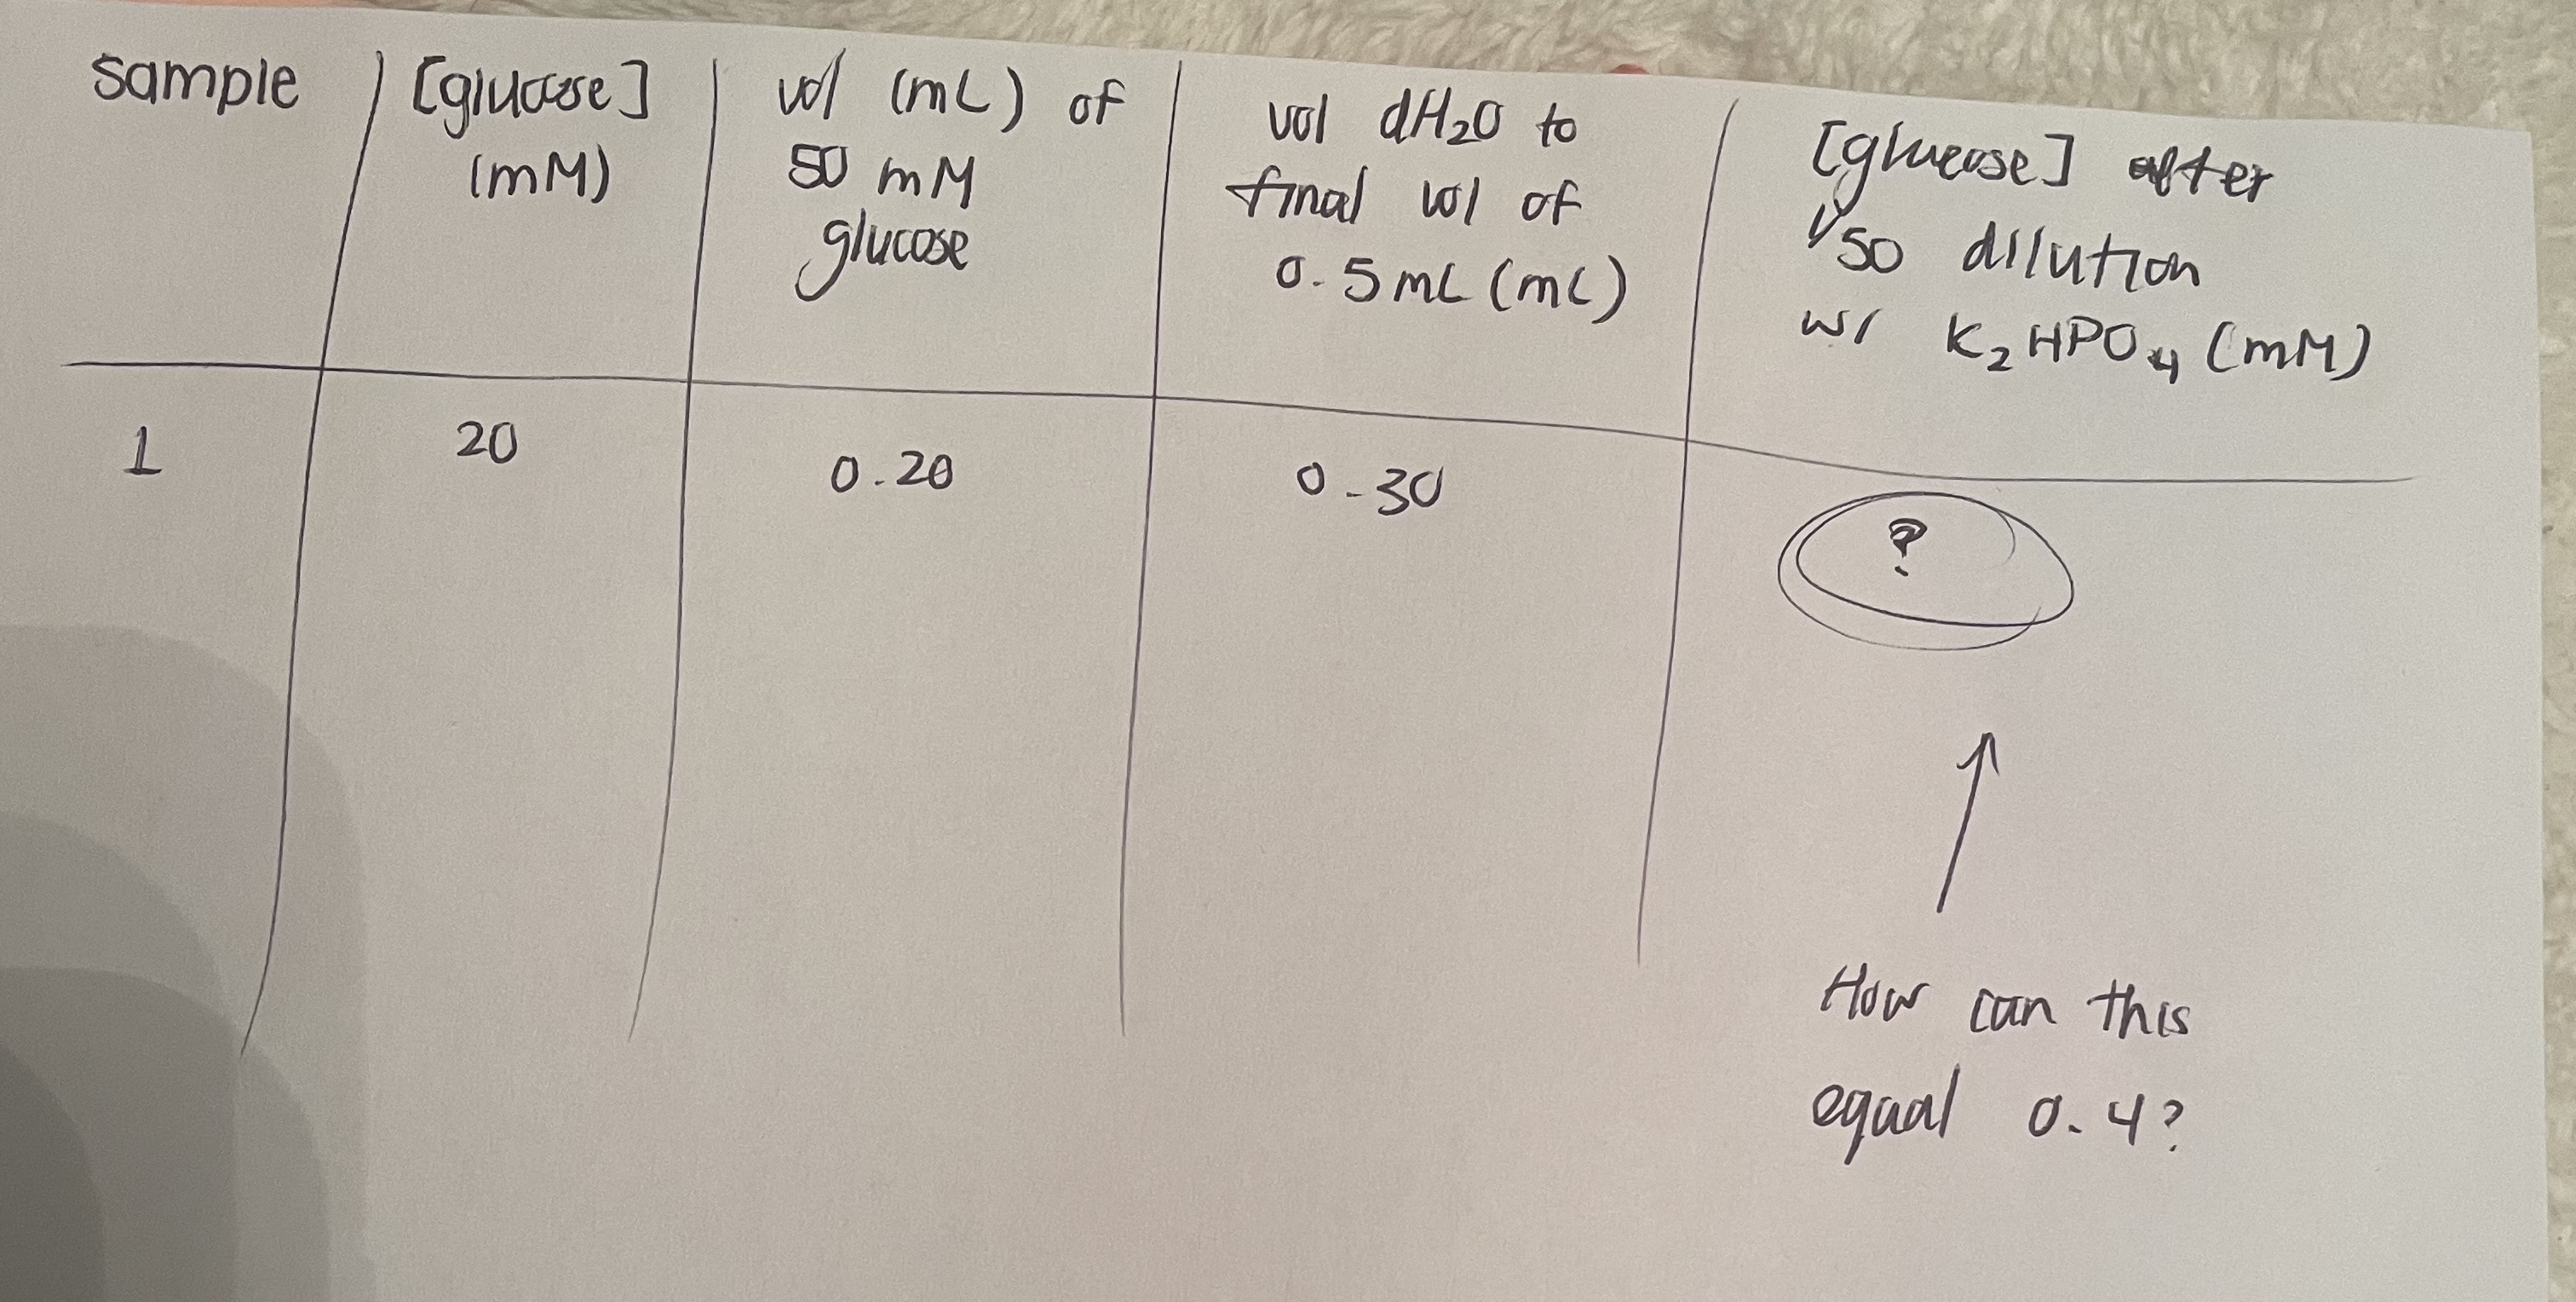 sample
[glucose]
(mM)
vol (mL) of
50 mM
glucose
vol dH₂O to
final vol of
0.5mL (mL)
[glucose] after
1/50 dilution
w/ K₂HPO₄ (mM)
1
20
0.20
0.30
?
How can this
equal 0.4?